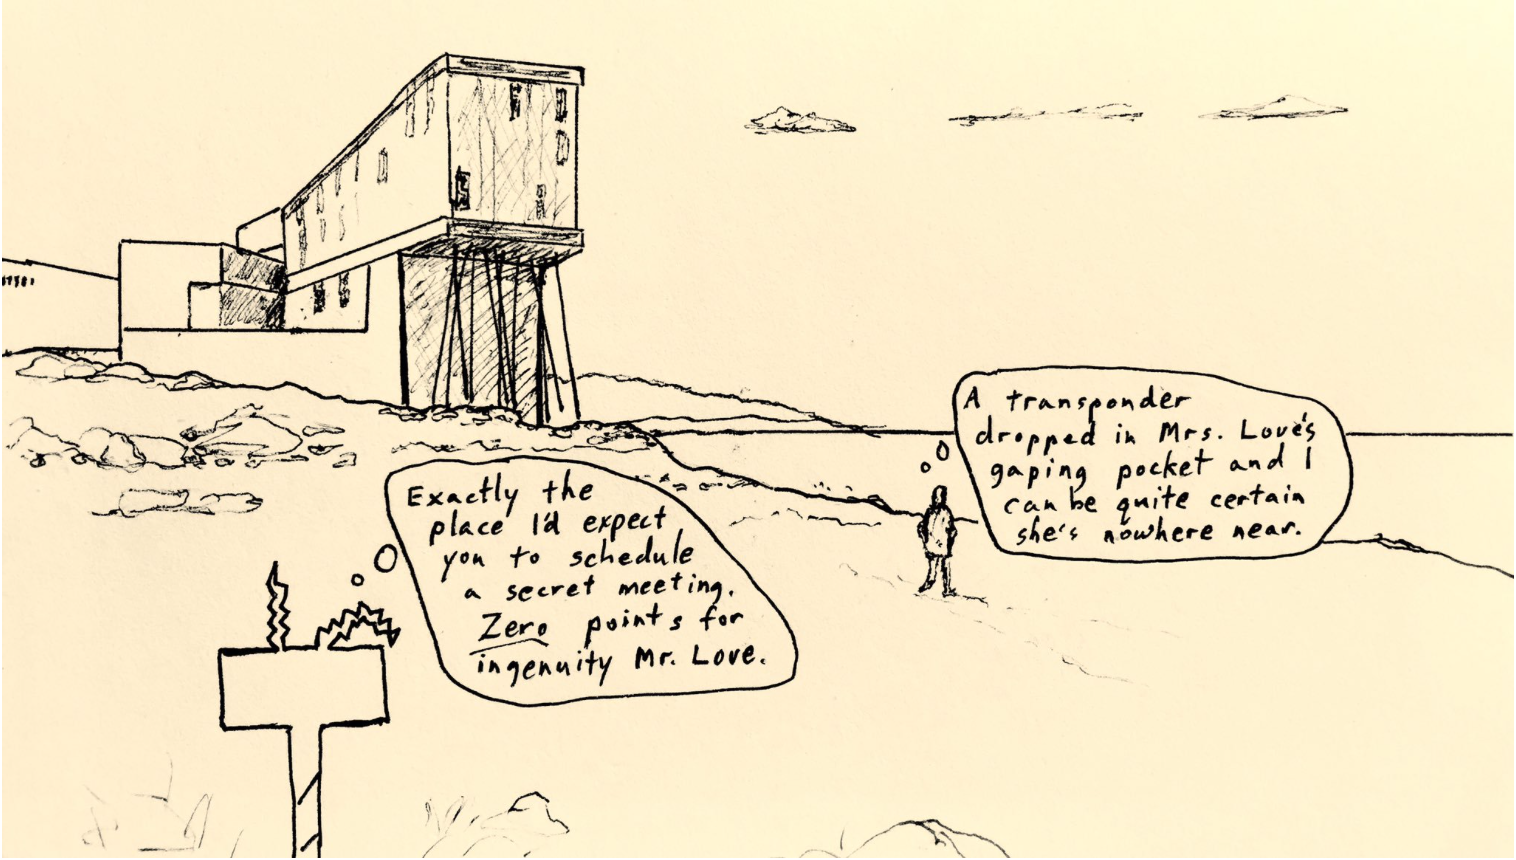 Exactly the
place I'd expect
you to schedule
a secret meeting.
Zero points for
ingenuity Mr. Love.
A transponder
dropped in Mrs. Love's
gaping pocket and I
can be quite certain
she's nowhere near.